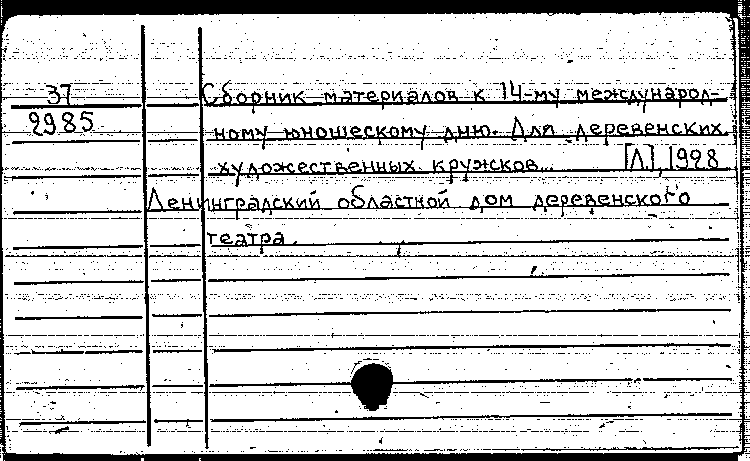 37
2985
Сборник материалов к 14-му международ-
ному юношескому дню. Для деревенских
художественных кружков... [Л], 1928
Ленинградский областной дом деревенского
театра.